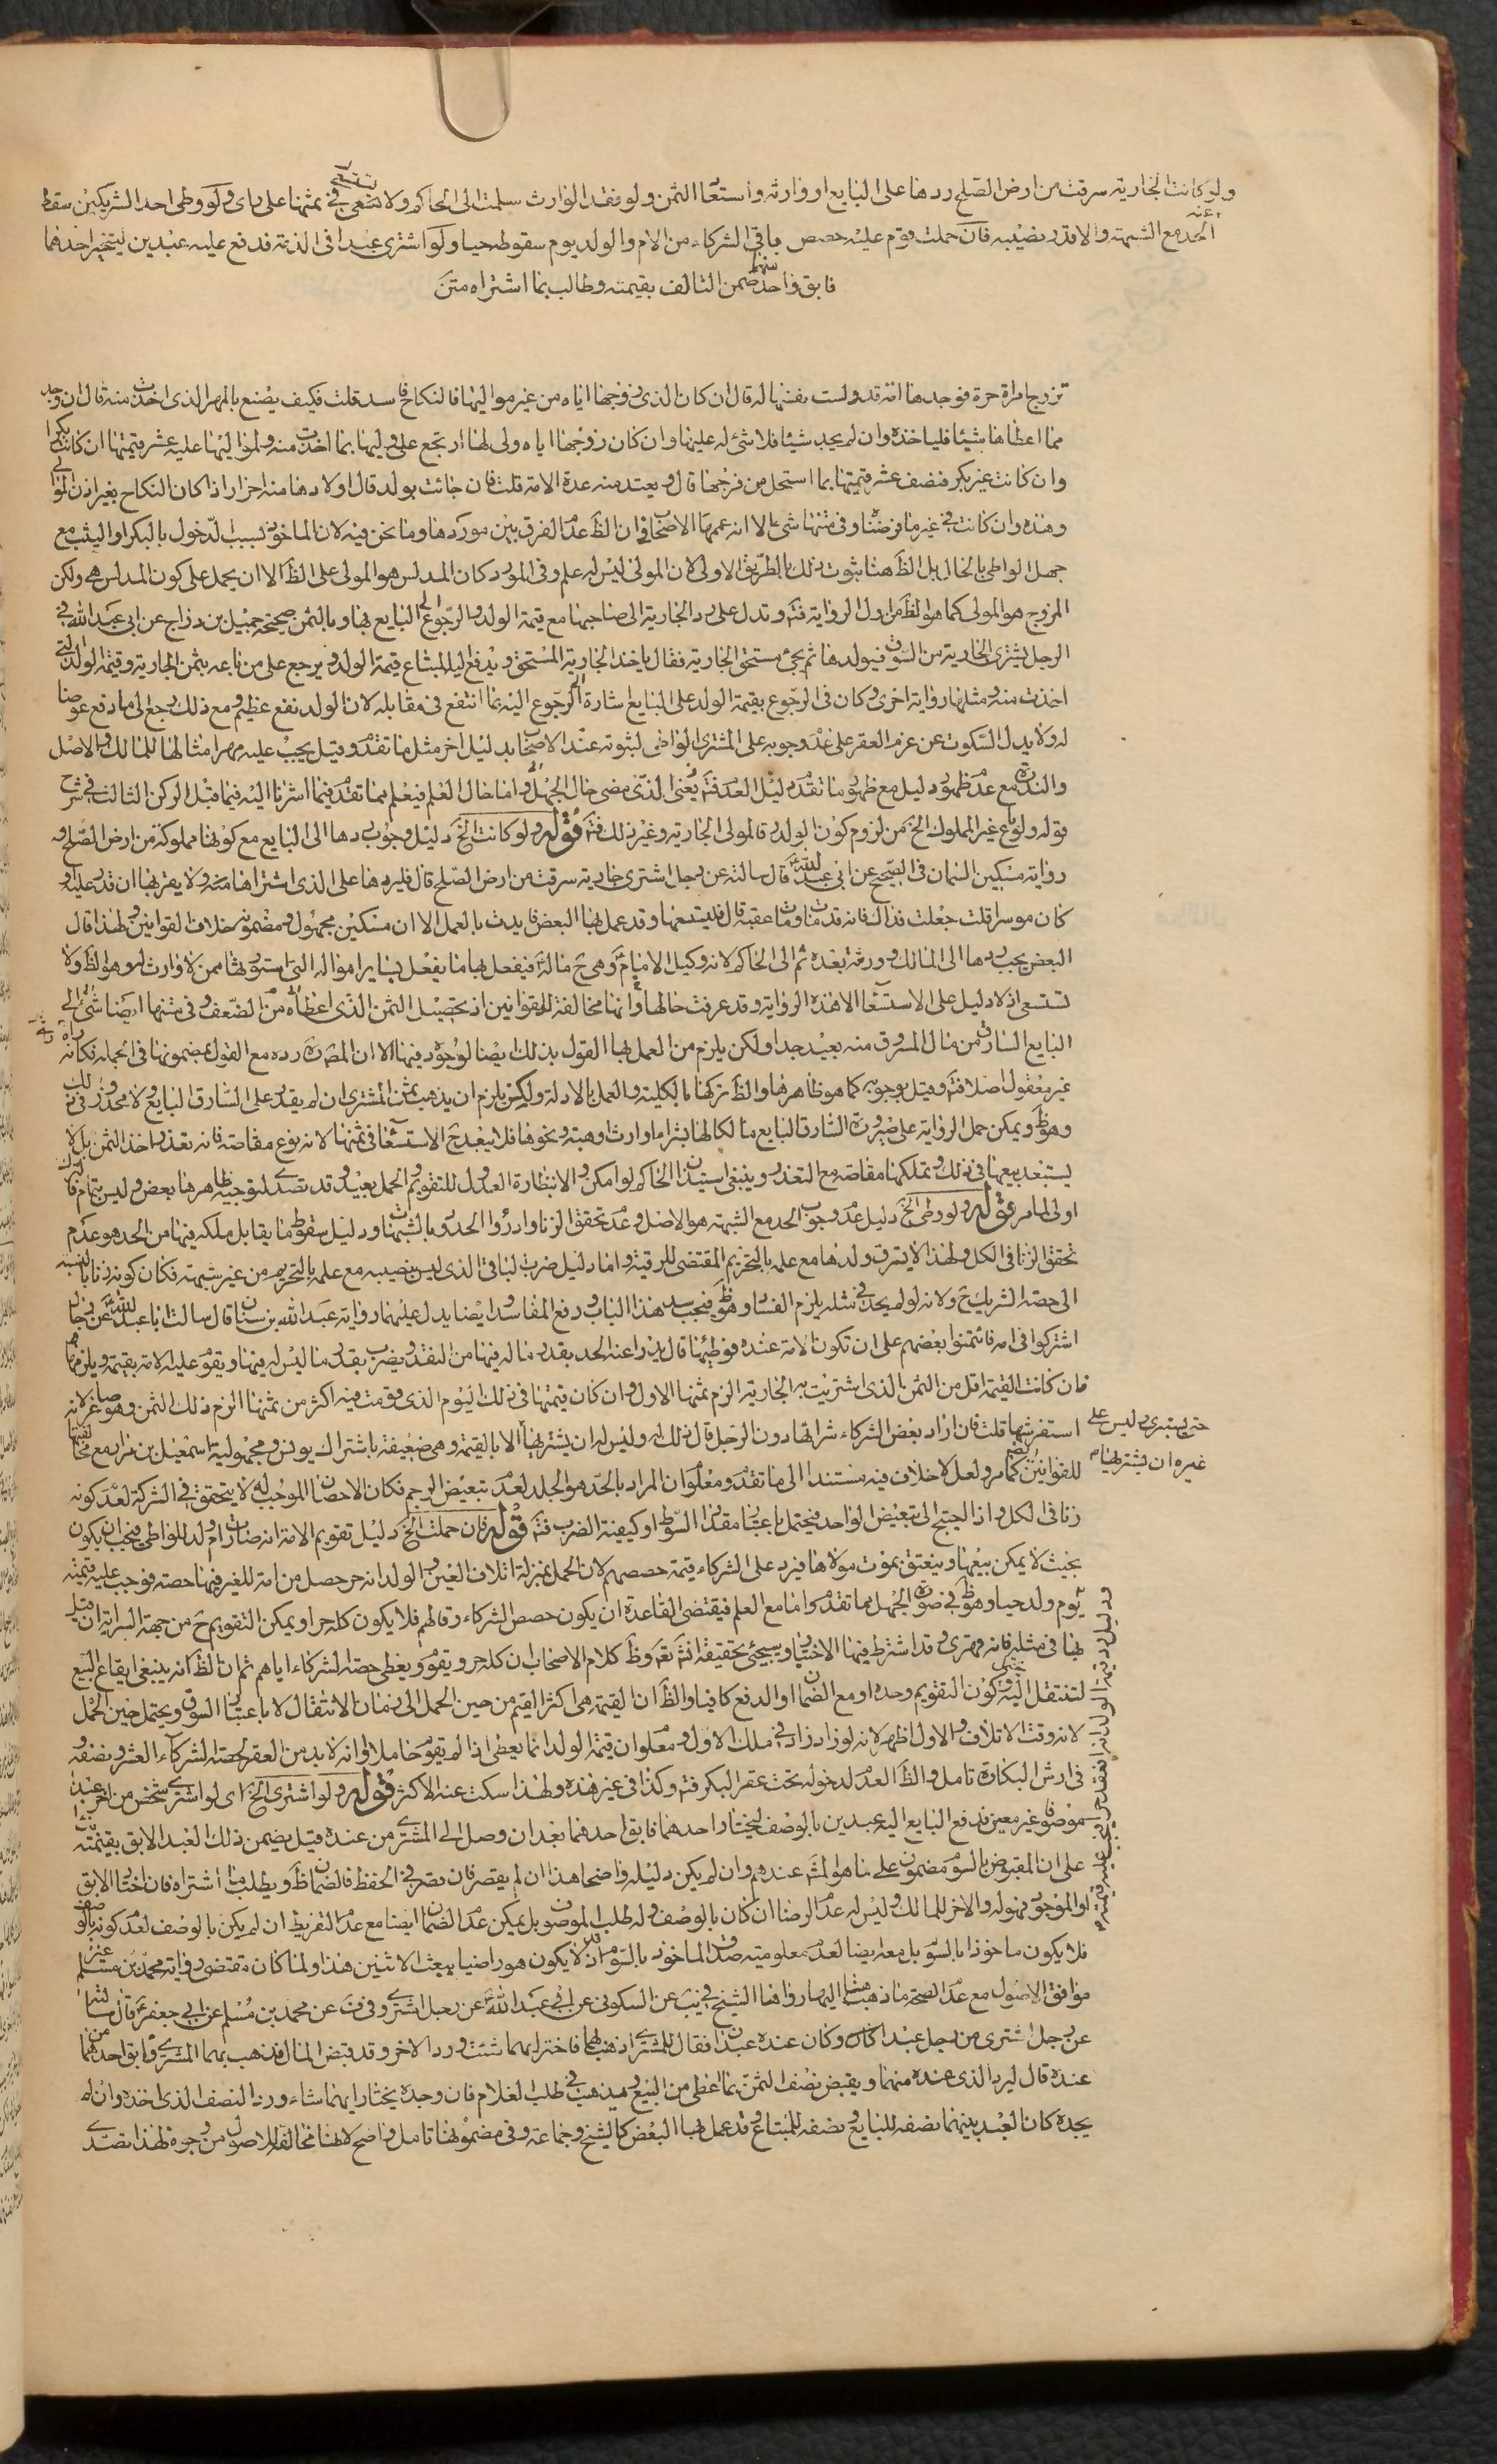 ولو كانت الجارية سرقت من ارض الصلح ردها على البايع او وارثه واستعاد الثمن ولو فقد الوارث سلمت الى الحاكم ولا تستسعى في ثمنها على راى ولو وطى احد الشريكين سقط
الحد مع الشبهة والا قدر نصيبه فان حملت قوم عليه حصص باقى الشركاء من الام والولد يوم سقوطه حيا ولو اشترى عبدا فى الذمة فدفع عليه عبدين ليتخير احدهما
فابق واحد ضمن التالف بقيمته وطالب بما اشتراه متن
تزوج امراة حرة فوجدها امة قد دلست نفسها له قال ان كان الذى زوجها اياه من غير مواليها فالنكاح فاسد قلت فكيف يصنع بالمهر الذى اخذت منه قال ان وجد
مما اعطاها شيئا فلياخذه وان لم يجد شيئا فلا شئ له عليها وان كان زوجها اياه ولى لها ارتجع على وليها بما اخذت منه ولمواليها عليه عشر قيمتها ان كانت بكرا
وان كانت غير بكر فنصف عشر قيمتها بما استحل من فرجها قال وتعتد منه عدة الامة قلت فان جائت بولد قال اولادها منه احرار اذا كان النكاح بغير اذن الموالى
وهذه وان كانت في غير ما فرضنا وفى متنها شئ الا انه عممها الاصحاب فان الظ عدم الفرق بين موردها وما نحن فيه لان الماخوذ بسبب الدخول بالبكر او الثيب مع
جهل الواطى بالحال بل الظ هنا ثبوت ذلك بالطريق الاولى لان المولى ليس له علم وفى المورد كان المدلس هو المولى على الظ الا ان يحمل على كون المدلس هى ولكن
المزوج هو المولى كما هو الظ من اول الرواية فتم وتدل على رد الجارية الى صاحبها مع قيمة الولد والرجوع الى البايع بها وبالثمن صحيحة جميل بن دراج عن ابى عبد الله في
الرجل يشترى الجارية من السوق فيولدها ثم يجئ مستحق الجارية فقال ياخذ الجارية المستحق ويدفع اليه المبتاع قيمة الولد ويرجع على من باعه بثمن الجارية وقيمة الولد التى
اخذت منه ومثلها رواية اخرى وكان فى الرجوع بقيمة الولد على البايع اشارة الى الرجوع اليه بما انتفع فى مقابله لان الولد نفع عظيم ومع ذلك رجع الى ما دفع عوضا
له ولا يدل السكوت عن غرم العقر على عدم وجوبه على المشترى الواطى لثبوته عند الاصحاب بدليل اخر مثل ما تقدم وقيل يجب عليه مهر امثالها للمالك والاصل
قوله ولو باع غير المملوك الخ من لزوم كون الولد رقا لمولى الجارية وغير ذلك فتم قوله ولو كانت الخ دليل وجوب ردها الى البايع مع كونها مملوكة من ارض الصلح هو
رواية مسكين السمان فى الصحيح عن ابى عبد الله قال سالته عن رجل اشترى جارية سرقت من ارض الصلح قال فليردها على الذى اشتراها منه ولا يقربها ان قدر عليه او
كان موسرا قلت جعلت فداك فانه قد مات ومات عقبه قال فليستسعها وقد عمل بها البعض الا ان مسكين مجهول ومضمونه خلاف القوانين ولهذا قال
البعض يجب ردها الى المالك وورثته بعده ثم الى الحاكم لانه وكيل الامام وهى ح ماله فيفعل بها ما يفعل بساير امواله التى استورثها ممن لا وارث له وهو الظ ولا
تستسعى اذ لا دليل على الاستسعا الا هذه الرواية وقد عرفت حالها وانها مخالفة للقوانين اذ تحصيل الثمن الذى اعطاه من الضعف وفى متنها ايضا شئ الى
البايع السارق من مال المسروق منه بعيد جدا ولكن يلزم من العمل بها القول بذلك ايضا لوجوده فيها الا ان المص رده مع القول بمضمونها فى الجملة فكانه
غير معقول اصلا فتم وقيل بوجوبه كما هو ظاهرها والظ تركها بالكلية والعمل بالادلة ولكن يلزم ان يذهب ثمن المشترى ان لم يقدر على السارق البايع ولا محذور في ذلك
وهو ظ ويمكن حمل الرواية على صيرورة السارق البايع مالكا لها بشراء او ارث او هبة ونحوها فلا يبعد ح الاستسعا فى ثمنها لانه نوع مقاصة فانه تعذر اخذ الثمن بل لا
يستبعد بيعها فى ذلك وتملكها مقاصة مع التعذر وينبغى استيذان الحاكم لو امكن
اولى لما مر قوله ولو وطى الخ دليل عدم وجوب الحد مع الشبهة هو الاصل وعدم تحقق الزنا وادرؤا الحدود بالشبهات ودليل سقوط ما يقابل ملكه فيها من الحد هو عدم
تحقق الزنا فى الكل ولهذا لا يسترق ولدها مع علمه بالتحريم المقتضى للرقية واما دليل ضرب الباقى الذى ليس بنصيبه مع علمه بالتحريم من غير شبهة فكان كونه زنا بالنسبة
الى حصة الشريك ح ولانه لو لم يحد في مثله يلزم الفساد وهو ظ فيجب سد هذا الباب ورفع المفاسد وايضا يدل عليهما رواية عبد الله بن سنان قال سالت ابا عبد الله عن رجال
اشتركوا فى امة فائتمنوا بعضهم على ان تكون الامة عنده فوطئها قال يدرا عنه الحد بقدر ما له فيها من النقد ويضرب بقدر ما ليس له فيها ويقوم عليه الامة بقيمة ويلزمها
فان كانت القيمة اقل من الثمن الذى اشتريت به الجارية الزم ثمنها الاول وان كان قيمتها فى ذلك اليوم الذى قومت فيه اكثر من ثمنها الزم ذلك الثمن وهو صاغر لانه
استفرشها قلت فان اراد بعض الشركاء شرائها دون الرجل قال ذلك له وليس له ان يشتريها الا بالقيمة وهى ضعيفة باشتراك يونس ومجهولية اسمعيل بن مرار مع مخالفتها
حتى يستبرئ وليس على
غيره ان يشتريها
للقوانين كما مر ولعل لا خلاف فيه مستندا الى ما تقدم ومعلوم ان المراد بالحد هو الجلد لعدم تبعيض الرجم فكان الاحصان الموجب له لا يتحقق في الشركة لعدم كونه
زنا فى الكل واذا احتيج الى تبعيض الواحد فيحتمل باعتبار مقدار السوط او كيفية الضرب فتم قوله فان حملت الخ دليل تقويم الامة انه صارت ام ولد للواطى فيجب ان يكون
بحيث لا يمكن بيعها وينعتق بموت مولاها فيرد على الشركاء قيمة حصصهم لان الحمل بمنزلة اتلاف العين والولد انه حر حصل من امة للغير فيها حصة فوجب عليه قيمته
يوم ولد حيا وهو ظ في صورة الجهل بما تقدم واما مع العلم فيقتضى القاعدة ان يكون حصص الشركاء رقا لهم فلا يكون كله حرا ويمكن التقويم ح من جهة السراية ان قيل
لتنتقل اليه وكون التقويم وحده او مع الضمان او الدفع كافيا والظ ان القيمة هى اكثر القيم من حين الحمل الى زمان الانتقال لا باعتبار السوق ويحتمل حين الحمل
لانه وقت الاتلاف والاول اظهر لانه لو زاد زاد في ملك الاول ومعلوم ان قيمة الولد انما يعطى اذا لم يقوم حاملا وانه لا بد من العقر لحصة الشركاء العشر ونصفه
فى ارش البكارة تامل والظ العدم لدخوله تحت عقر البكر فتم وكذا فى غير هذه ولهذا سكت عنه الاكثر قوله ولو اشترى الخ اى لو اشترى شخص من اخر عبدا
موصوفا غير معين فدفع البايع اليه عبدين بالوصف ليختار احدهما فابق احدهما بعد ان وصل الى المشترى من عنده قيل يضمن ذلك العبد الابق بقيمته بناء
على ان المقبوض بالسوم مضمون على ما هو المش عندهم وان لم يكن دليله واضحا هذا ان لم يقصر فان قصر في الحفظ فالضمان ظ ويطلب ما اشتراه فان اختار الابق
او الموجود فهو له والاخر للمالك وليس له عدم الرضا ان كان بالوصف وله طلب الموصوف بل يمكن عدم الضمان ايضا مع عدم التفريط ان لم يكن بالوصف لعدم كونه بالوصف
فلا يكون ماخوذا بالسوم بل معه ايضا لعدم معلومية صدق الماخوذ بالسوم اذ قد لا يكون هو راضيا ببعث الاثنين هذا ولما كان مقتضى رواية محمد بن مسلم غير
موافق الاصول مع عدم الصحة ما ذهب اليها رواها الشيخ في يب عن السكونى عن ابى عبد الله عن رجل اشترى وفى قب عن محمد بن مسلم عن ابى جعفر قال سالته
عن رجل اشترى من رجل عبدا كان وكان عنده عبدان فقال للمشترى اذهب بهما فاختر ايهما شئت ورد الاخر وقد قبض المال فذهب بهما المشترى فابق احدهما من
عنده قال ليرد الذى عنده منهما ويقبض نصف الثمن مما اعطى من البيع ويذهب في طلب الغلام فان وجده يختار ايهما شاء ورد النصف الذى اخذ وان لم
يجده كان العبد بينهما نصفه للبايع ونصفه للمبتاع وقد عمل بها البعض كالشيخ وجماعة وفى مضمونها تامل واضح لانها مخالفة للاصول من وجوه لهذا تصدى